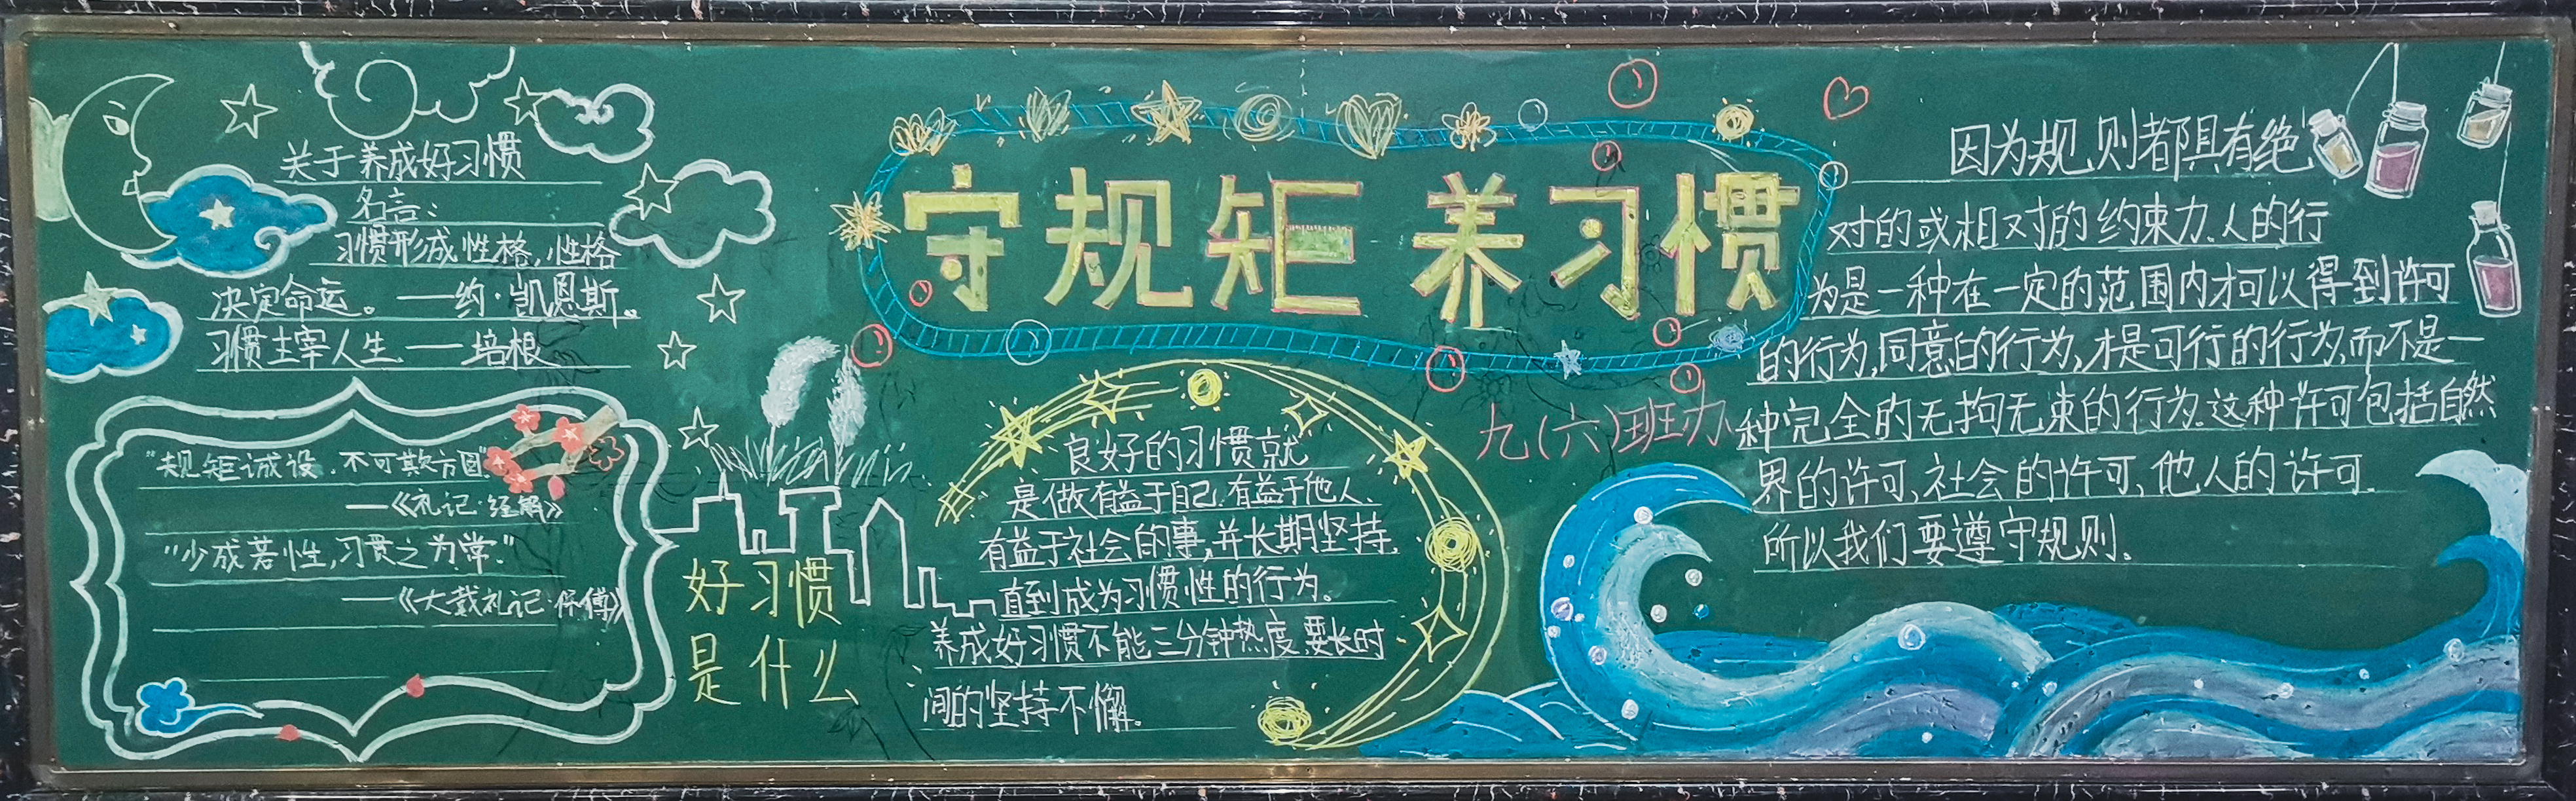 守规矩 养习惯
关于养成好习惯
名言：
习惯形成性格,性格
决定命运。——约·凯恩斯。
习惯主宰人生——培根
"规矩诚设.不可欺方圆"
——《礼记·经解》
"少成若性,习贯之为常."
——《大戴礼记·保傅》
好习惯
是什么
良好的习惯就
是做有益于自己.有益于他人.
有益于社会的事,并长期坚持.
直到成为习惯性的行为。
养成好习惯不能三分钟热度要长时
间的坚持不懈.
九(六)班办
因为规则都具有绝
对的或相对的约束力.人的行
为是一种在一定的范围内才可以得到许可
的行为,同意的行为,才是可行的行为,而不是一
种完全的无拘无束的行为.这种许可包括自然
界的许可、社会的许可、他人的许可.
所以我们要遵守规则.